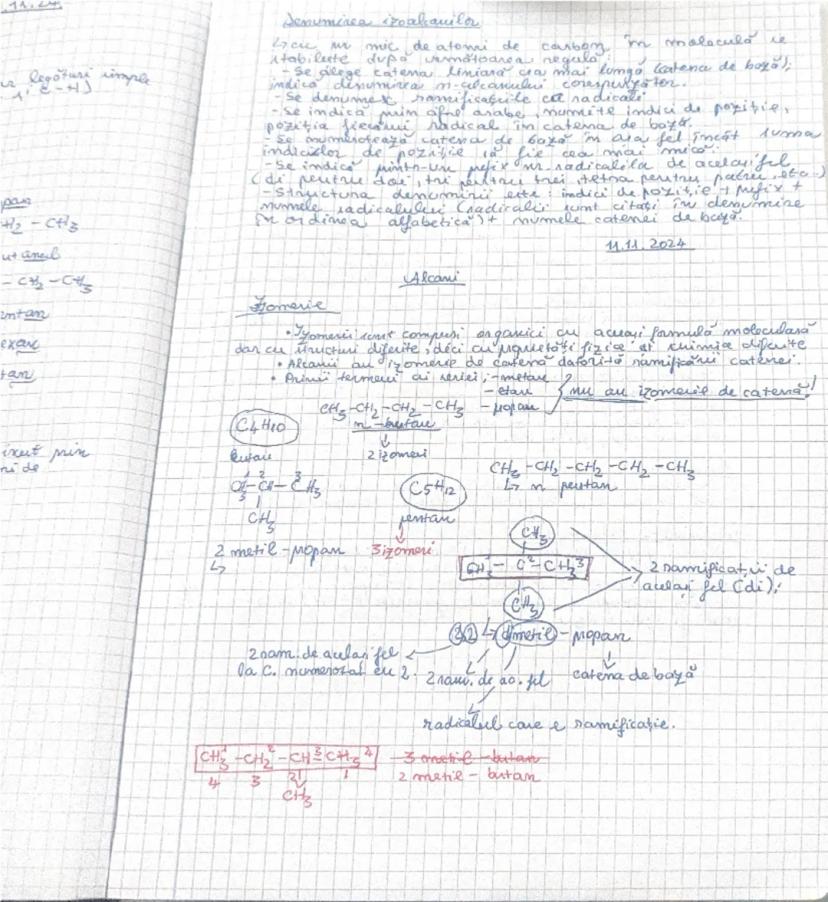 11.24
legături simple
C-H)
pan
H2 - CH3
utanul
- CH2 - CH3
entan
exan
tan
prin
ni de
Denumirea izoalcanilor
↳ cu nr mic de atomi de carbon în moleculă se
stabilește după următoarea regulă
- Se alege catena liniară cea mai lungă (catena de bază);
indică denumirea n-alcanului corespunzător.
- Se denumesc ramificațiile ca radicali
- Se indică prin cifre arabe, numite indici de poziție,
poziția fiecărui radical în catena de bază.
- Se numerotează catena de bază în așa fel încât suma
indicilor de poziție să fie cea mai mică.
- Se indică printr-un prefix nr. radicalilor de același fel
(di pentru doi, tri pentru trei, tetra pentru patru, etc.)
- Structura denumirii este: indici de poziție + prefix +
numele radicalului (radicalii sunt citați în denumire
în ordinea alfabetică) + numele catenei de bază.
11.11.2024
Alcani
Izomerie
• Izomerii sunt compuși organici cu aceeași formulă moleculară
dar cu structuri diferite, deci cu proprietăți fizice și chimice diferite
• Alcanii au izomerie de catenă datorită ramificării catenei.
• Primii termeni ai seriei: - metan
- etan
- propan
nu au izomerie de catenă!
CH3-CH2-CH2-CH3
n-butan
C4H10
butan
2 izomeri
CH3 - CH2 - CH2 - CH2 - CH3
↳ n pentan
1 2 3
CH3 - CH - CH3
CH3
C5H12
pentan
3 izomeri
2 metil-propan
CH3
CH3 1 - C 2 - CH3 3
CH3
2 ramificații de
același fel (di);
2,2 ↳ dimetil - propan
2 ram. de același fel
la C. numerotat cu 2.
2 ram. de ac. fel
catena de bază
radicalul care e ramificație.
CH3 1 - CH2 2 - CH 3 - CH3 4
4 3 2 1
CH3
3 metil - butan
2 metil - butan